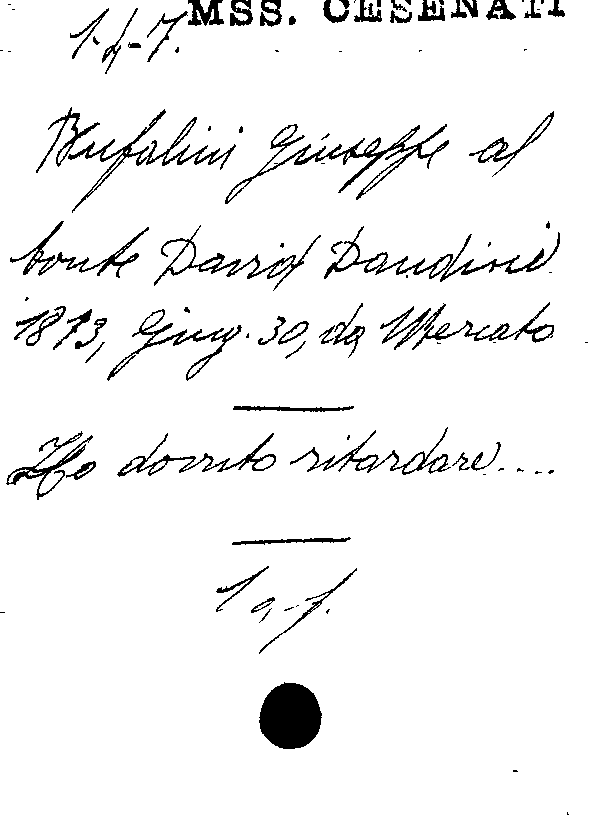 MSS. CESENATI
1-4-7.
Bufalini Giuseppe al
Conte David Dandini
1813, Giug. 30, da Mercato
Ho dovuto ritardare....
1 a-f.